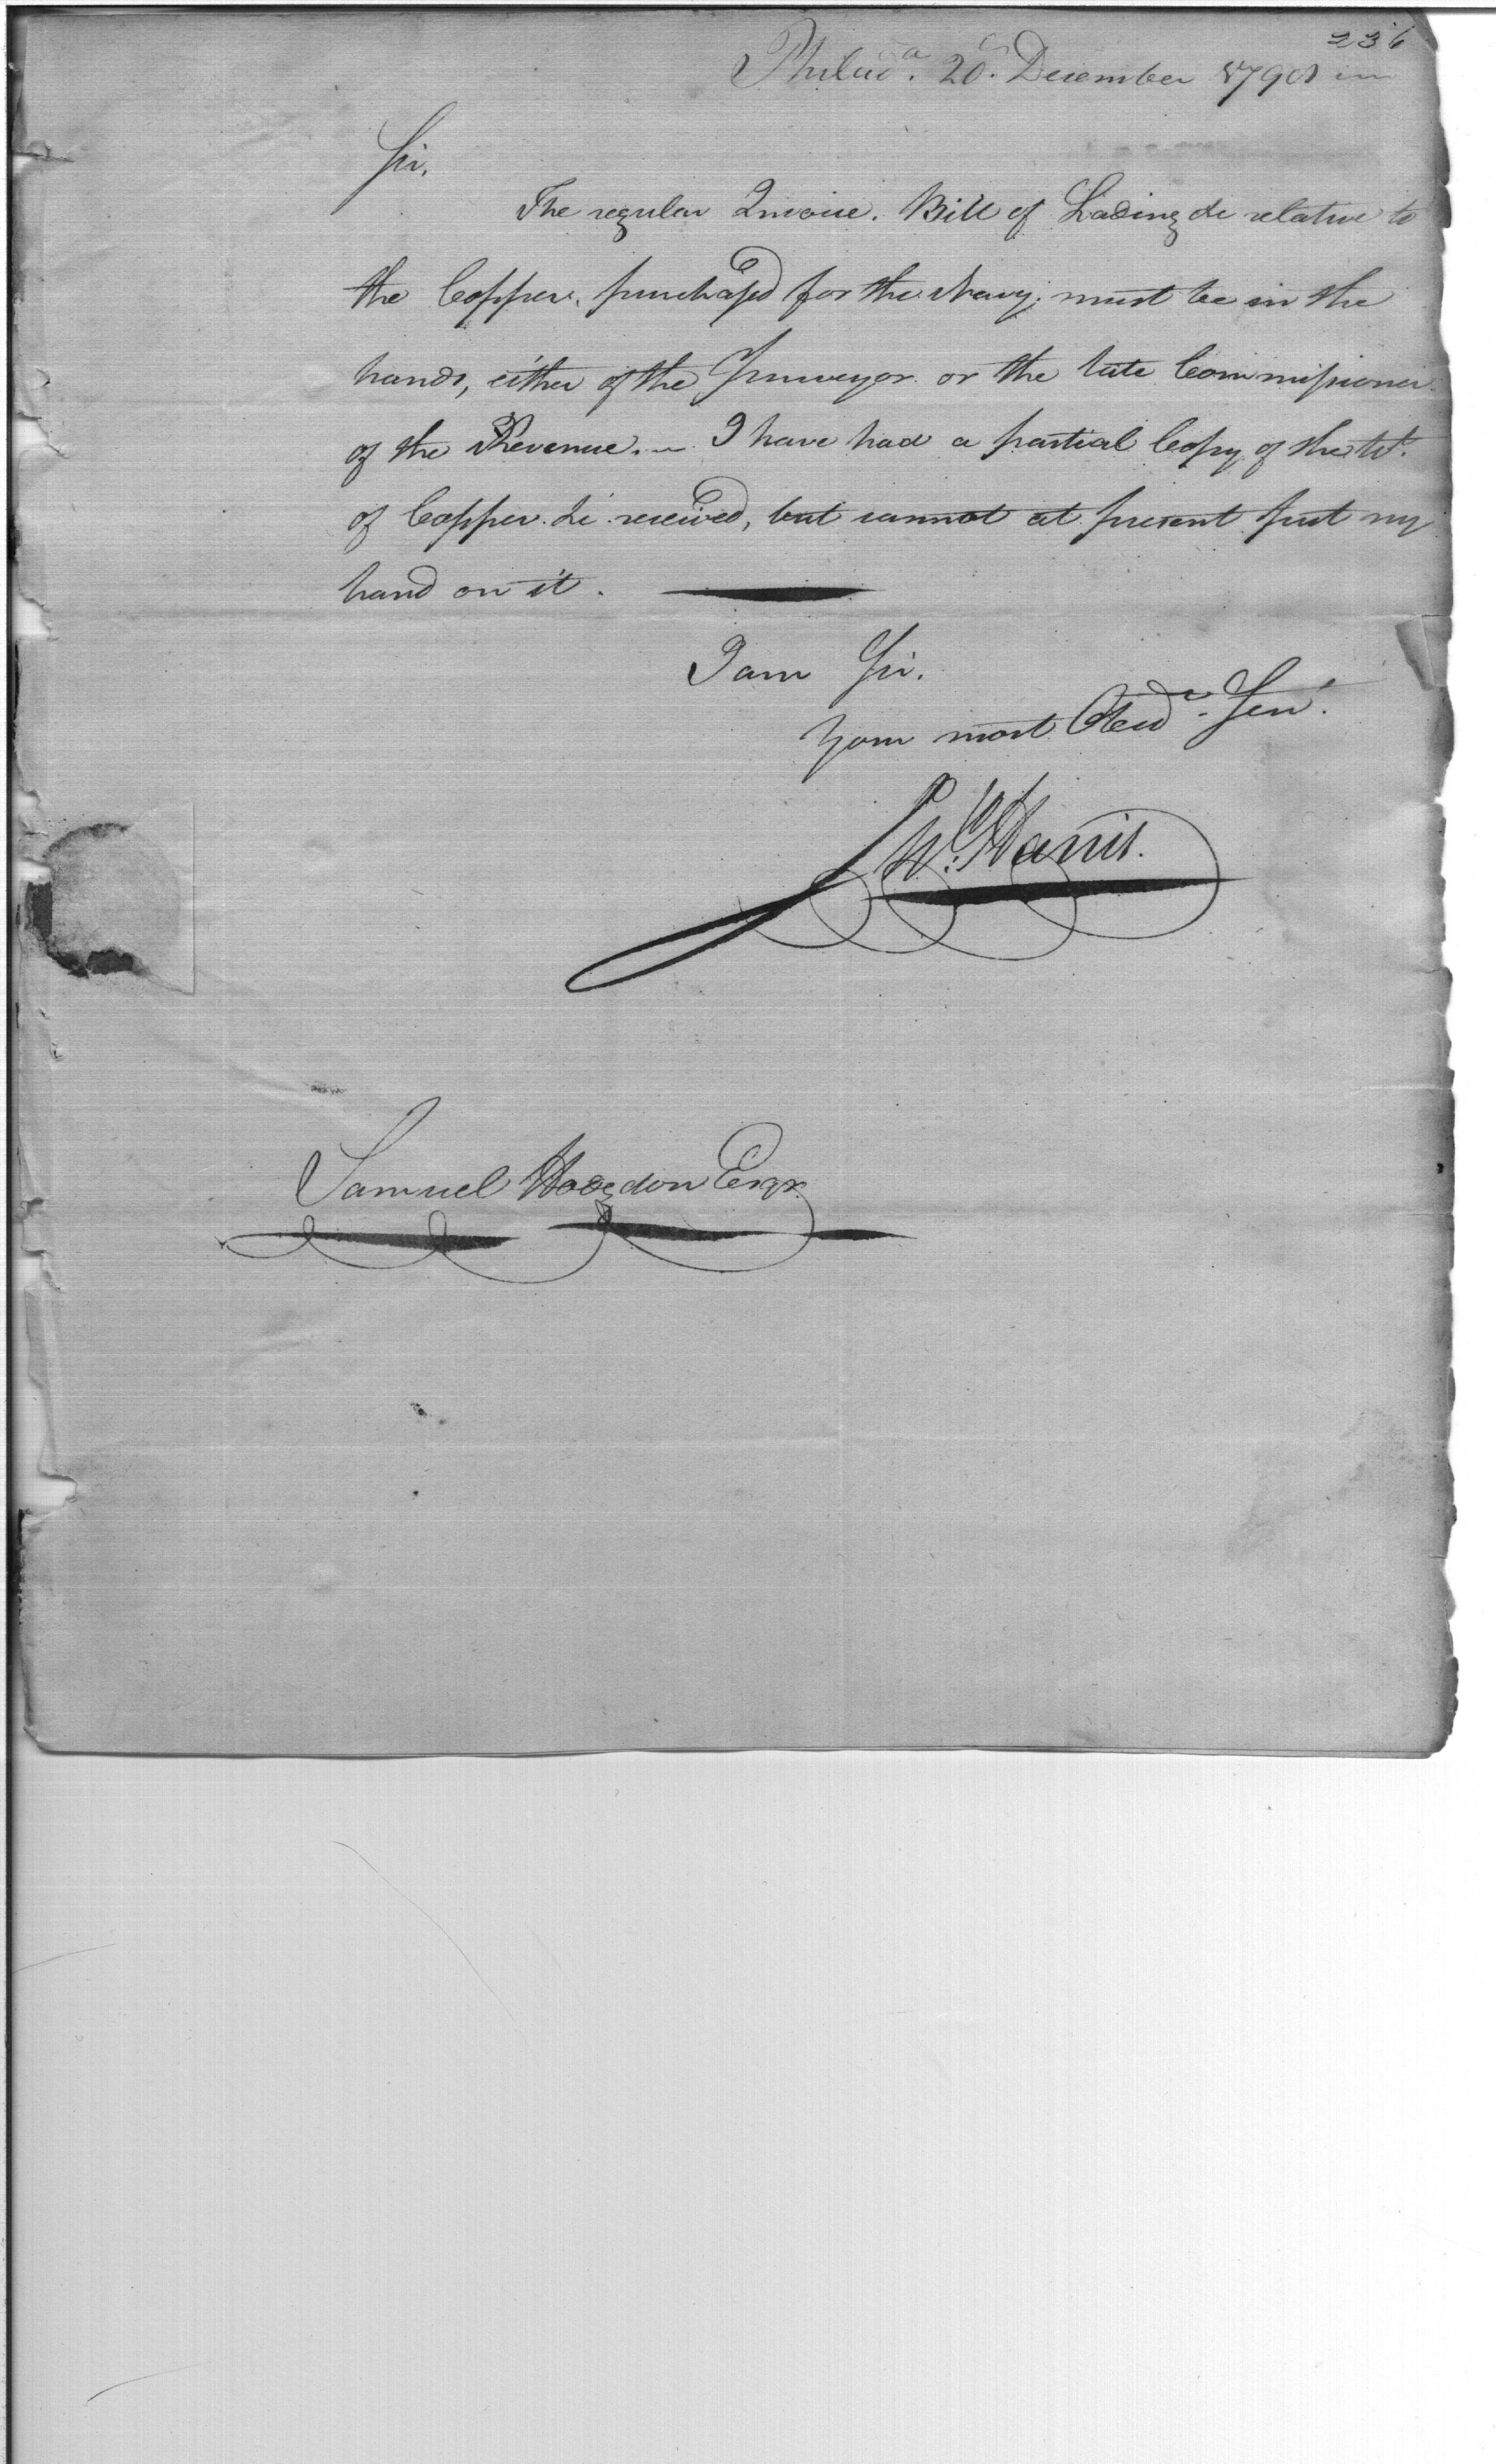 236
Philad.a 20th December 1798
Sir,
The regular Invoice, Bill of Lading &c relative to
the Copper, purchased for the Navy, must be in the
hands, either of the Purveyor or the late Commissioner
of the Revenue. ~ I have had a partial Copy of the Wt.
of Copper &c received, but cannot at present put my
hand on it.
I am Sir.
Your most Obedt. Sert.
Jn. Harris.
Samuel Hodgdon Esqr.